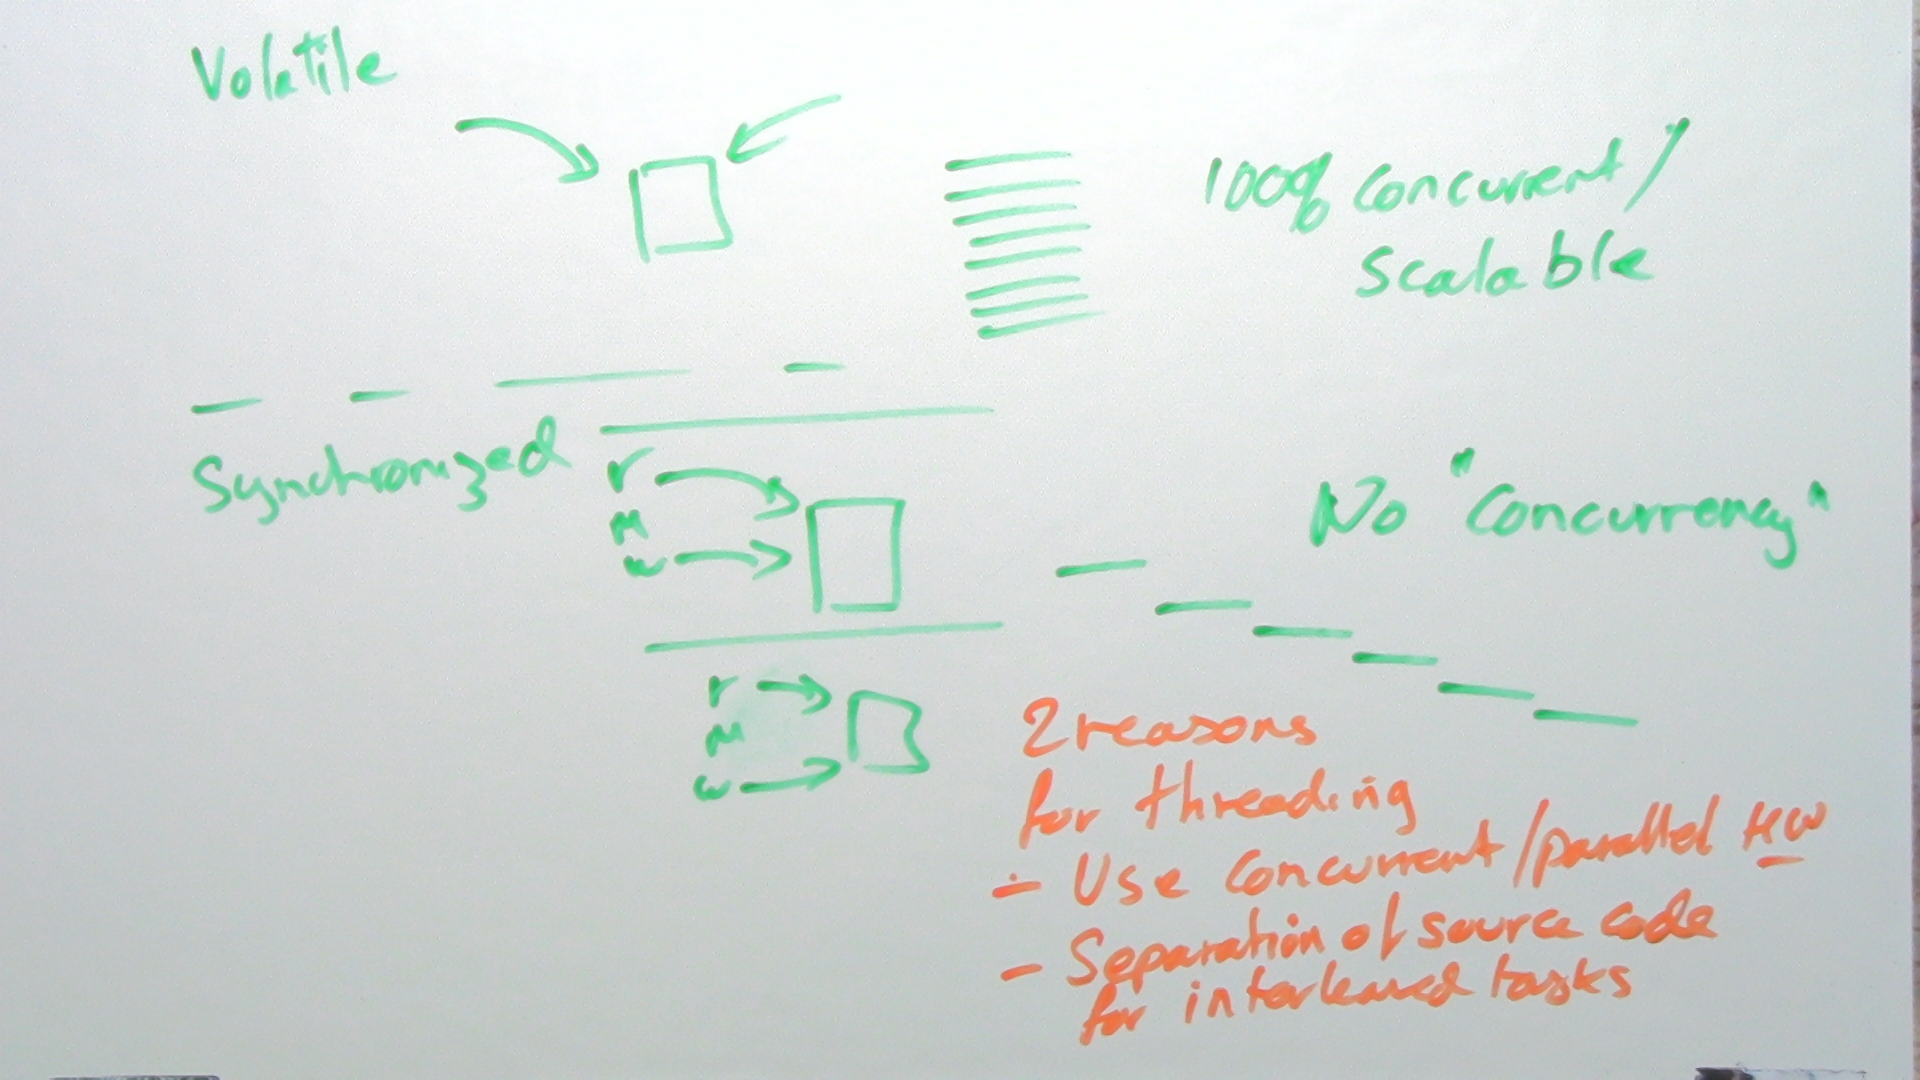 Volatile
100% concurrent /
Scalable
Synchronized
r
M
w
No "Concurrency"
r
M
w
2 reasons
for threading
- Use concurrent/parallel HW
- Separation of source code
for interleaved tasks